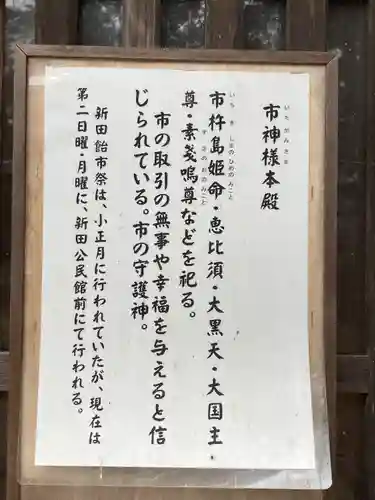 市神様本殿
いちがみさま
市杵島姫命・恵比須・大黒天・大国主
いちきしまのひめのみこと
尊・素戔嗚尊などを祀る。
すさのおのみこと
市の取引の無事や幸福を与えると信
じられている。市の守護神。
新田飴市祭は、小正月に行われていたが、現在は
第二日曜・月曜に、新田公民館前にて行われる。